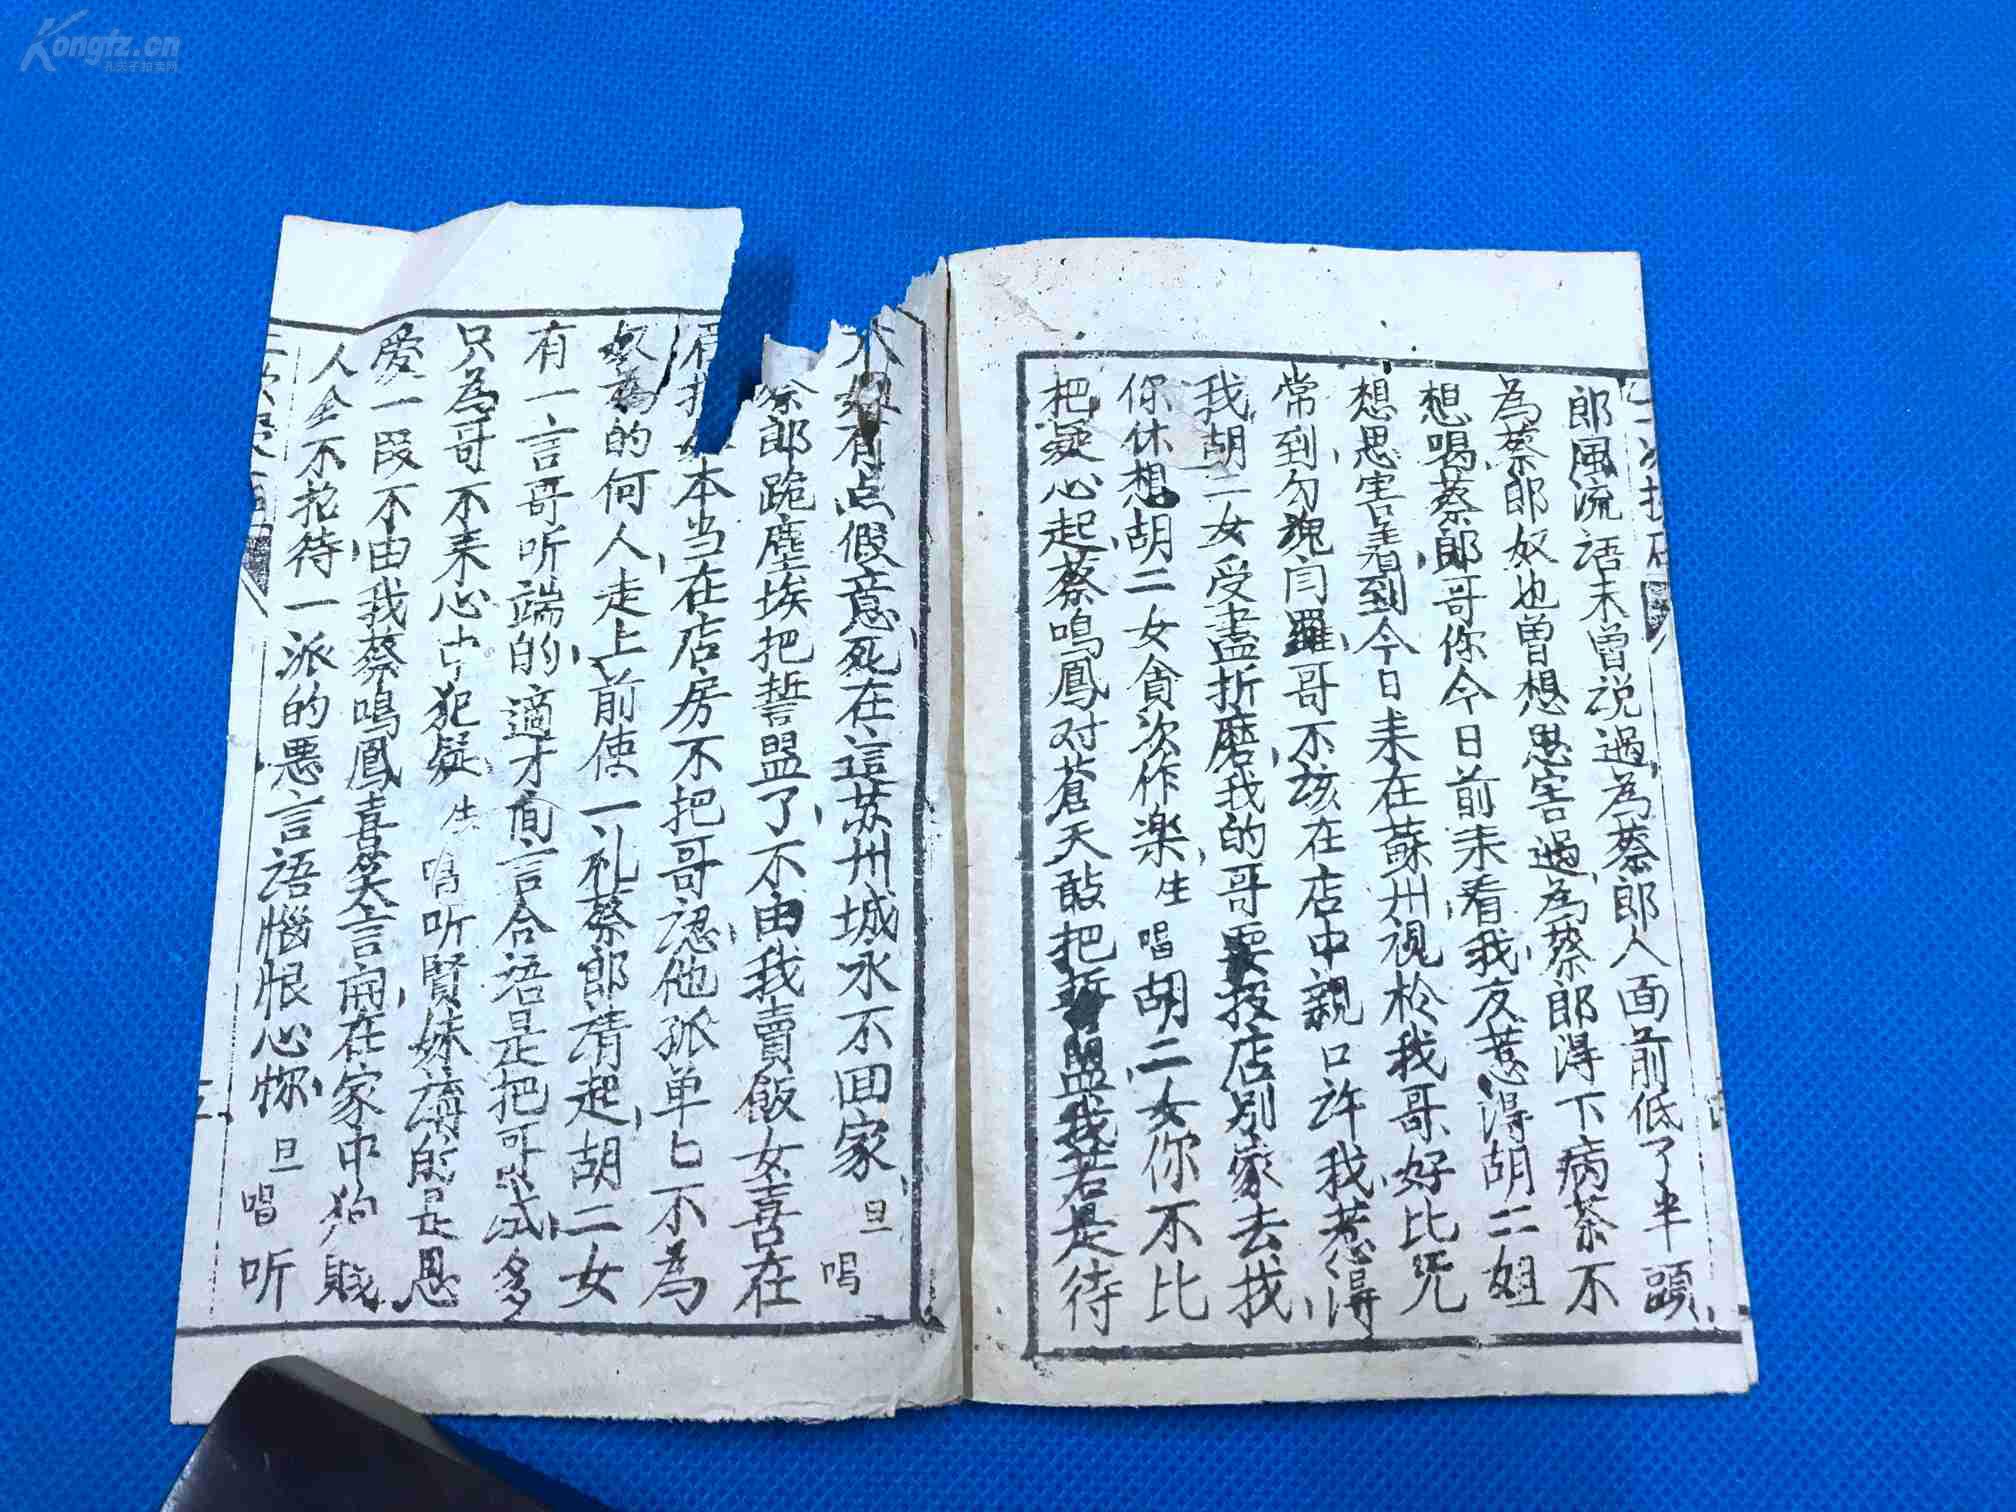 Kongfz.cn
孔夫子拍卖网
郎風流語未曾説過為蔡郎人面前低了半頭
為蔡郎奴也曾想思害過為蔡郎得下病茶不
想喝蔡郎哥你今日前来看我友惹得胡二姐
想思害呈着到今日来在蘇州視於我哥好比咒
常到勿魂閆羅哥不該在店中親口許我惹得
我胡二女受盡折磨我的哥要投店别家去找
你休想胡二女貪次作楽生唱胡二女你不比
把疑心起蔡鳴鳳对蒼天敢把誓盟我若是待
大姐有点假意死在這苏州城永不回家旦唱
蔡郎跪塵埃把誓盟了不由我賣飯女喜在
本当在店房不把哥認他孤单匕不為
奴為的何人走上前使一礼蔡郎請起胡二女
有一言哥听端的適才間言合語是把哥試多
只為哥不来心中犯疑生唱听賢妹講的是恩
愛一段不由我蔡鳴鳳喜笑言開在家中狗賤
人全不招待一派的悪言語惱恨心怀旦唱听